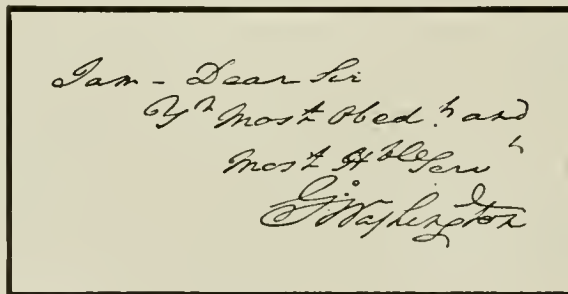 I am – Dear Sir
Yr Most Obedt and
Most Hble Servt
Go Washington